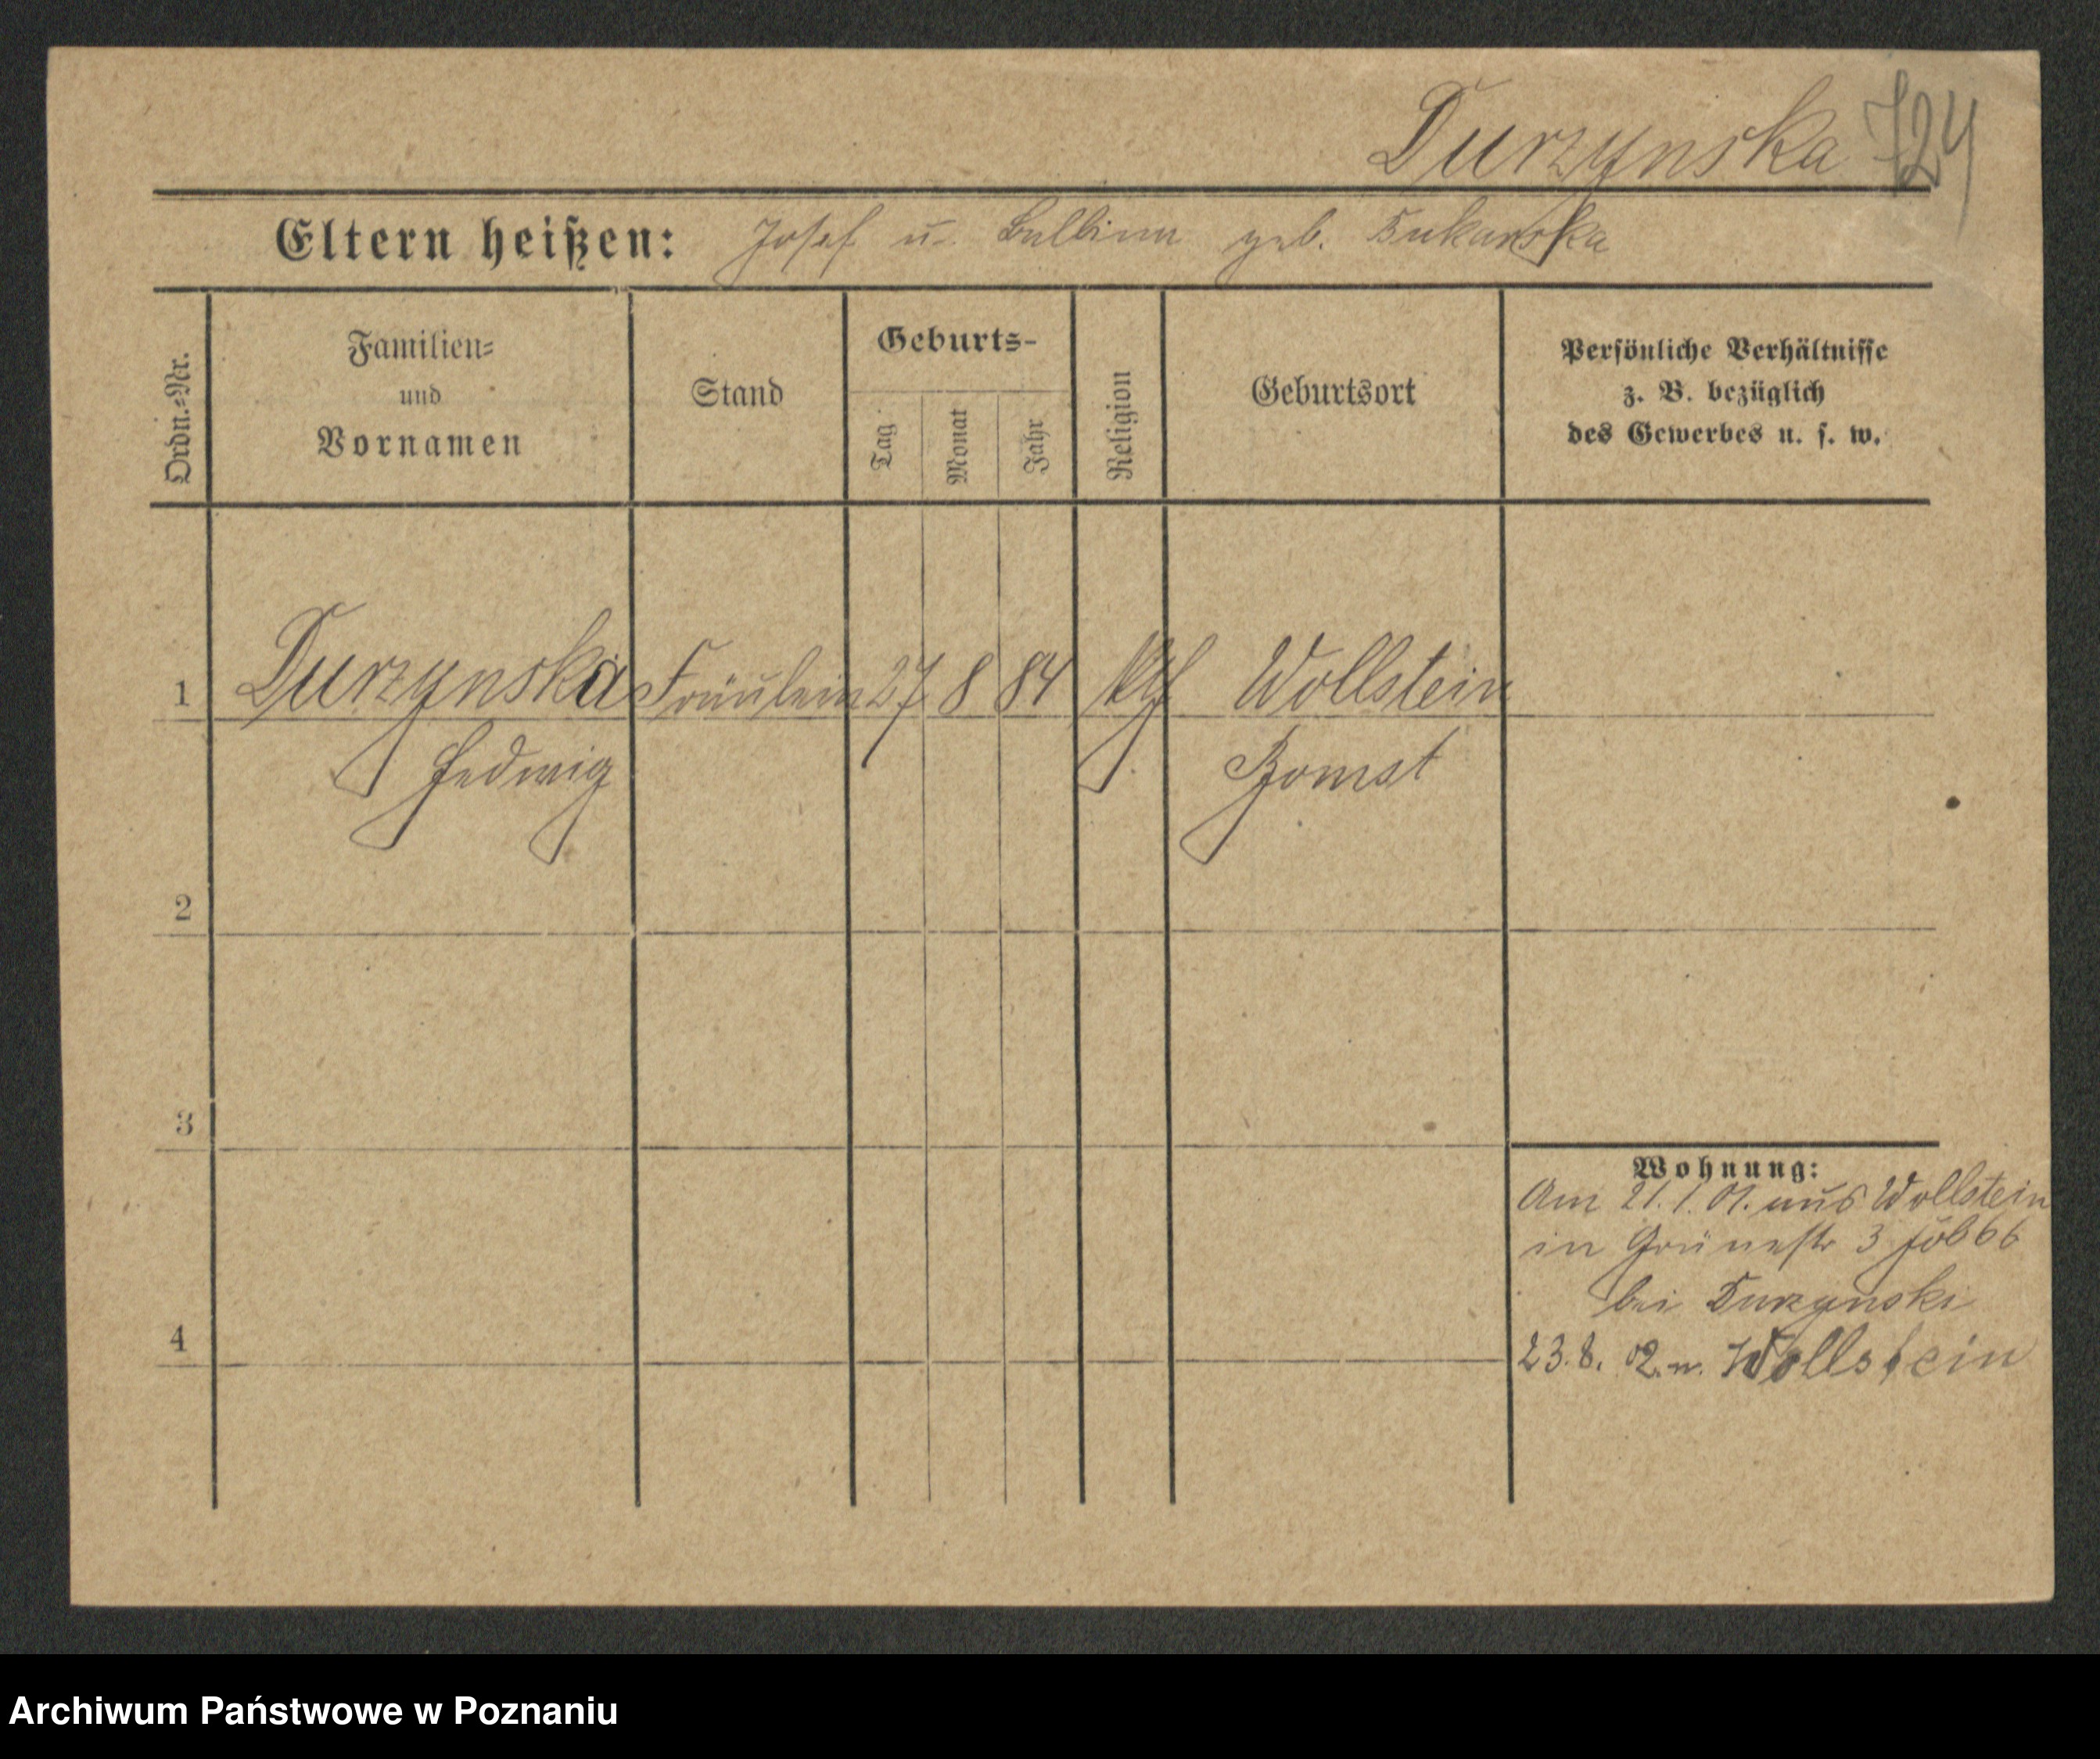 Durzynska 724
Eltern heißen: Josef u. Balbina geb. Bukanska
Ordn.=Nr.
Familien=
und
Vornamen
Stand
Geburts-
Tag
Monat
Jahr
Religion
Geburtsort
Persönliche Verhältnisse
z. B. bezüglich
des Gewerbes u. s. w.
1 Durzynska Fräulein 27 8 84 ktf Wollstein
Hedwig Bomst
2
3
4
Wohnung:
Am 21.1.01. aus Wollstein
in Grünestr 3
bei Durzynski
23.8. 02. n. Wollstein
Archiwum Państwowe w Poznaniu